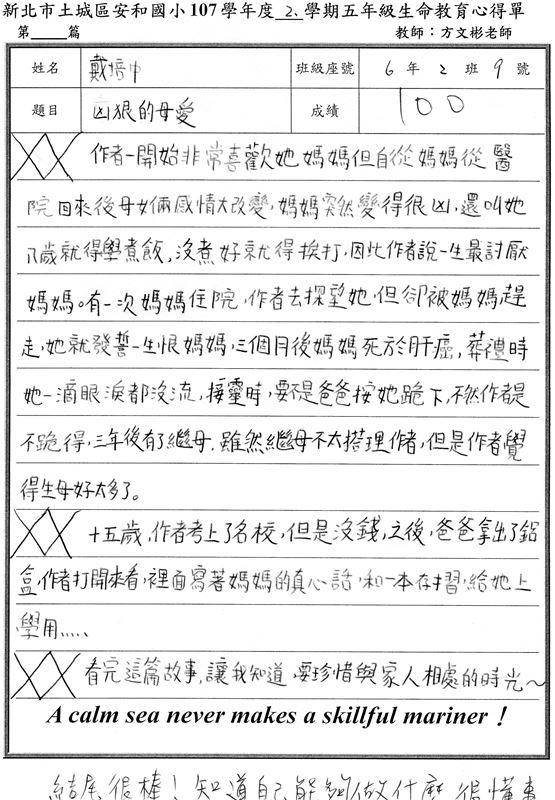 新北市土城區安和國小107學年度2、學期五年級生命教育心得單
第____篇 教師：方文彬老師
姓名 戴培中 班級座號 6年2班9號
題目 凶狠的母愛 成績 100
作者一開始非常喜歡她媽媽但自從媽媽從醫
院回來後母女倆感情大改變，媽媽突然變得很凶，還叫她
八歲就得學煮飯，沒煮好就得挨打，因此作者說一生最討厭
媽媽。有一次媽媽住院，作者去探望她，但卻被媽媽趕
走，她就發誓一生恨媽媽，三個月後媽媽死於肝癌，葬禮時
她一滴眼淚都沒流，接靈時，要不是爸爸按她跪下，不然作者是
不跪得，三年後有了繼母，雖然繼母不太搭理作者，但是作者覺
得生母好太多了。
十五歲，作者考上了名校，但是沒錢，之後，爸爸拿出了鋁
盒，作者打開來看，裡面寫著媽媽的真心話，和一本存摺，給她上
學用.....
看完這篇故事，讓我知道，要珍惜與家人相處的時光～
A calm sea never makes a skillful mariner！
結尾很棒！知道自己能夠做什麼 很懂事